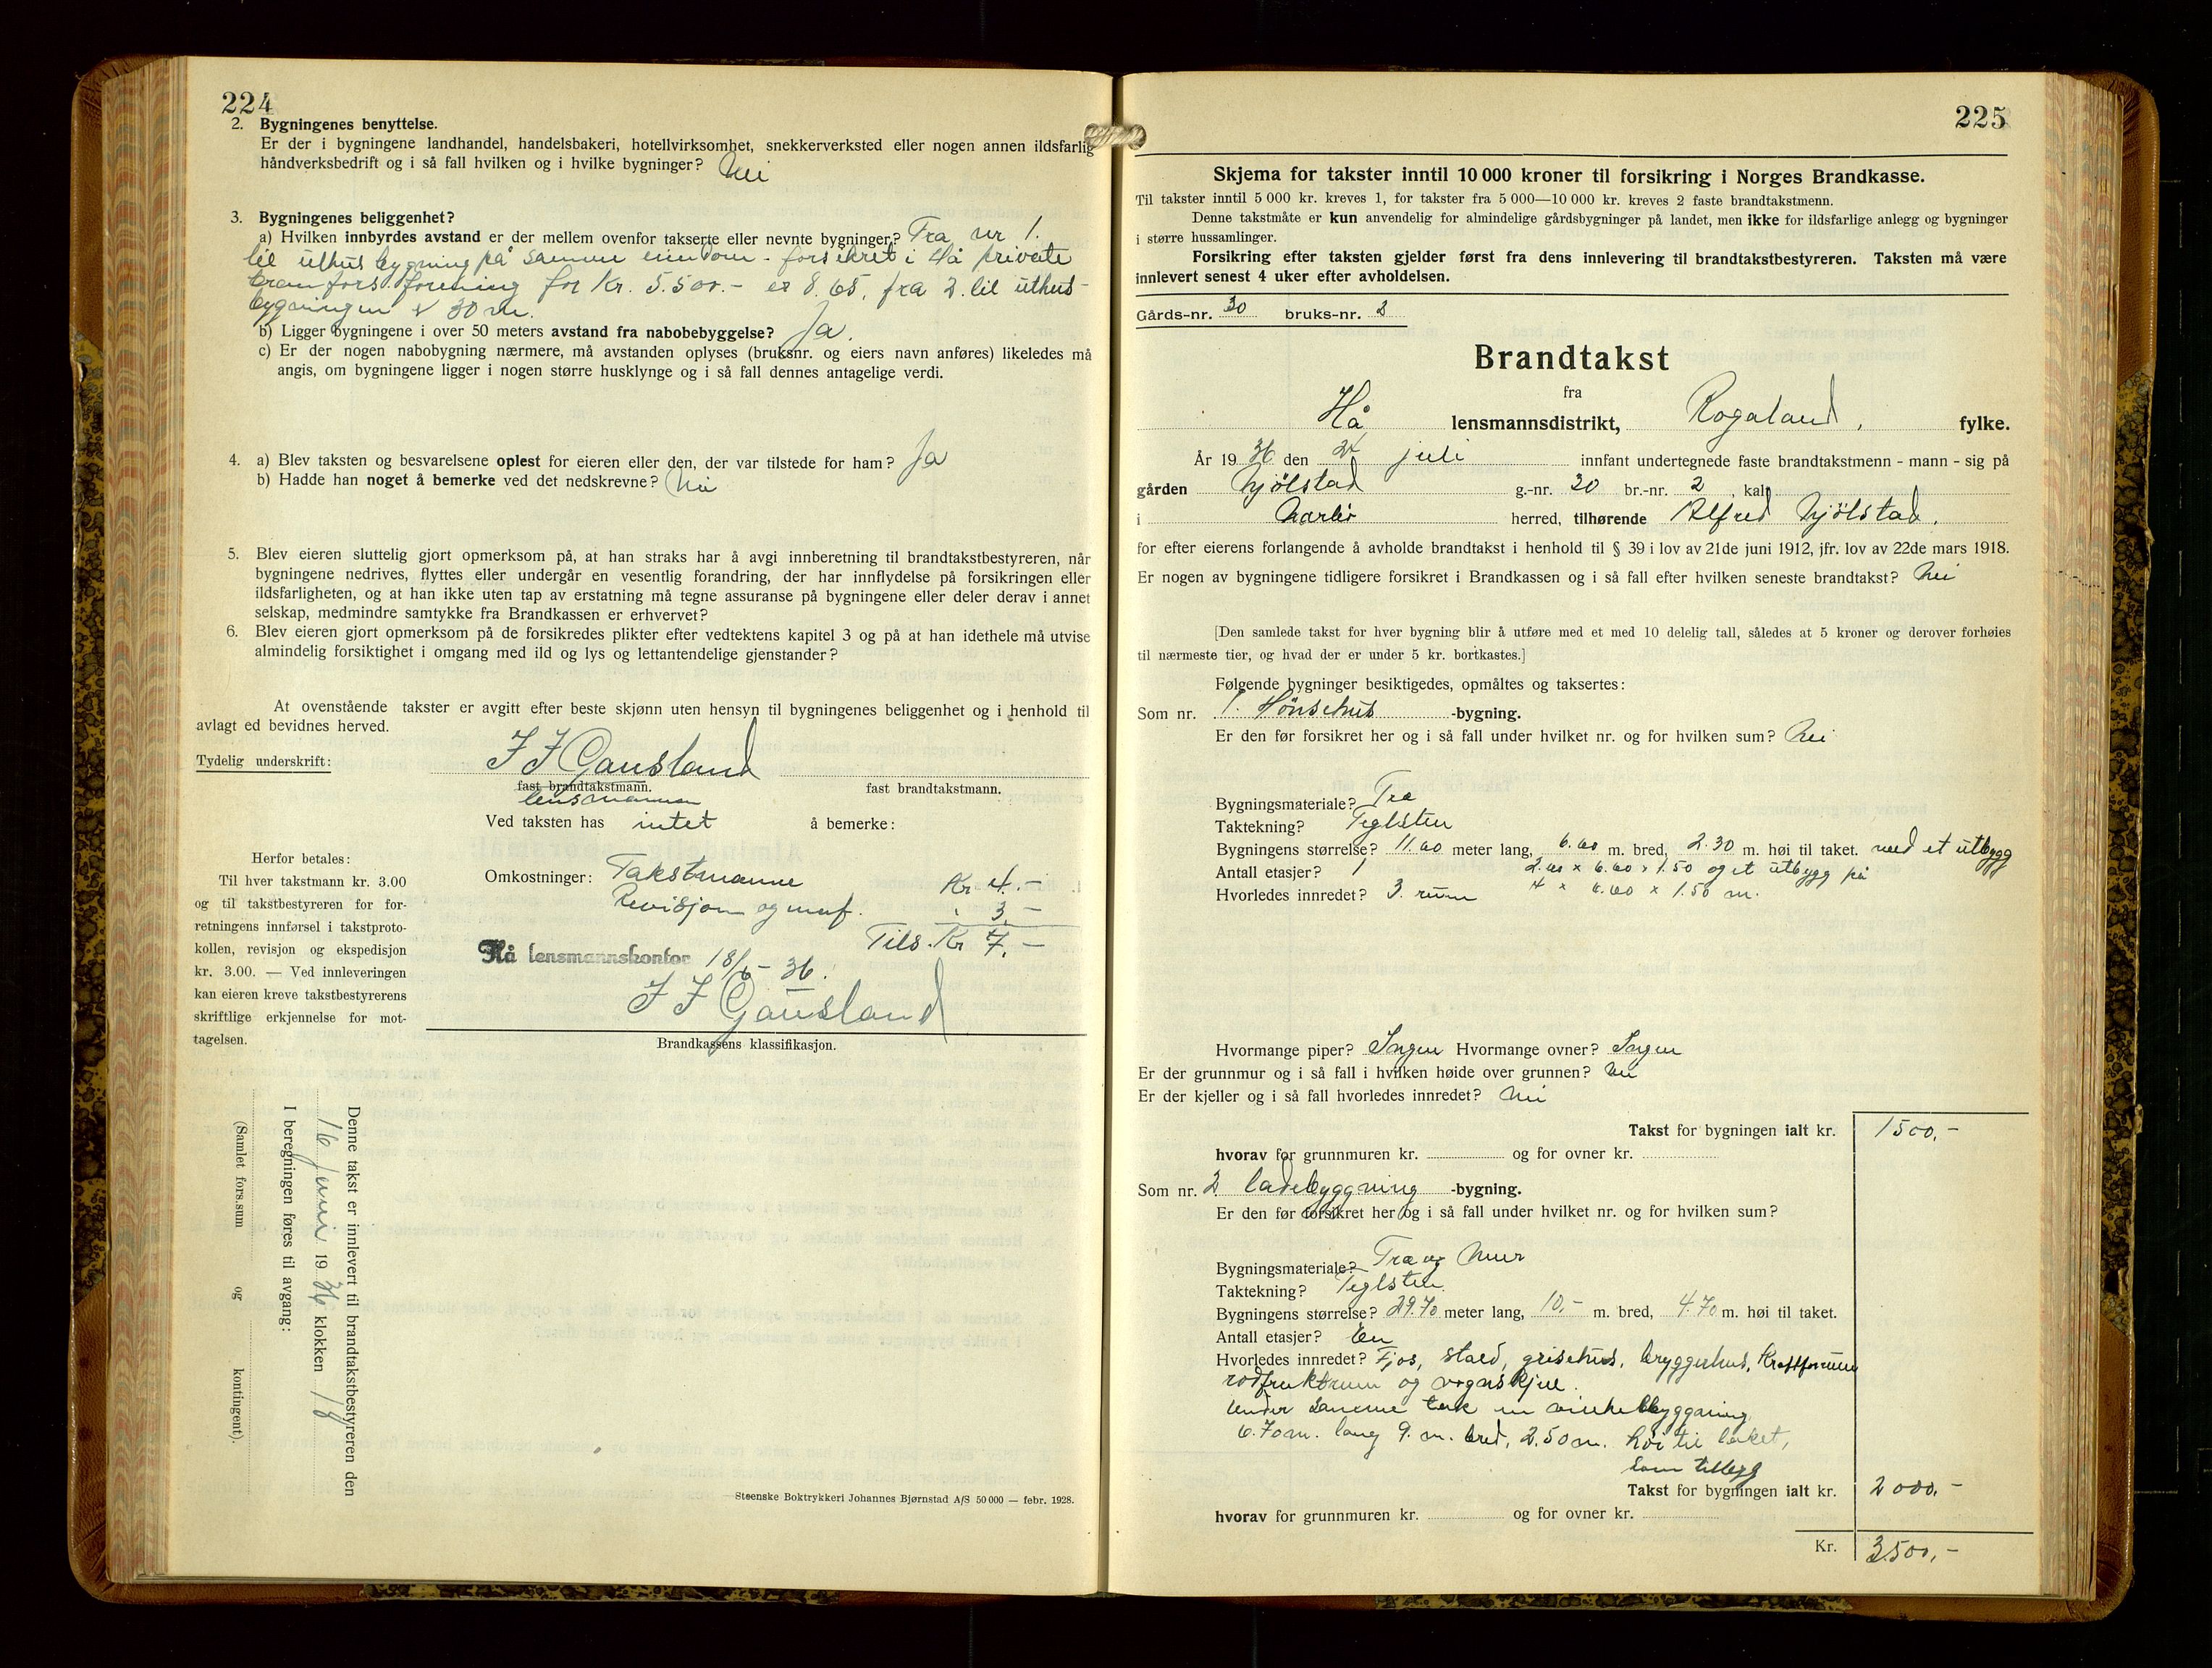 224
2. Bygningenes benyttelse.
Er der i bygningene landhandel, handelsbakeri, hotellvirksomhet, snekkerverksted eller nogen annen ildsfarlig
håndverksbedrift og i så fall hvilken og i hvilke bygninger? Nei
3. Bygningenes beliggenhet?
a) Hvilken innbyrdes avstand er der mellem ovenfor takserte eller nevnte bygninger? Fra nr 1.
til uthusbygning på samme eiendom - forsikret i Hå private
branfors. forening for Kr. 5.500.- er 8.65, fra 2. til uthus-
bygningen 30 m.
b) Ligger bygningene i over 50 meters avstand fra nabobebyggelse? Ja.
c) Er der nogen nabobygning nærmere, må avstanden oplyses (bruksnr. og eiers navn anføres) likeledes må
angis, om bygningene ligger i nogen større husklynge og i så fall dennes antagelige verdi.
4. a) Blev taksten og besvarelsene oplest for eieren eller den, der var tilstede for ham? Ja
b) Hadde han noget å bemerke ved det nedskrevne? Nei
5. Blev eieren sluttelig gjort opmerksom på, at han straks har å avgi innberetning til brandtakstbestyreren, når
bygningene nedrives, flyttes eller undergår en vesentlig forandring, der har innflydelse på forsikringen eller
ildsfarligheten, og at han ikke uten tap av erstatning må tegne assuranse på bygningene eller deler derav i annet
selskap, medmindre samtykke fra Brandkassen er erhvervet?
6. Blev eieren gjort opmerksom på de forsikredes plikter efter vedtektens kapitel 3 og på at han idethele må utvise
almindelig forsiktighet i omgang med ild og lys og lettantendelige gjenstander?
At ovenstående takster er avgitt efter beste skjønn uten hensyn til bygningenes beliggenhet og i henhold til
avlagt ed bevidnes herved.
Tydelig underskrift: J J Gausland
fast brandtakstmann. fast brandtakstmann.
lensmannen
Ved taksten has intet å bemerke:
Herfor betales:
Til hver takstmann kr. 3.00
og til takstbestyreren for for-
retningens innførsel i takstproto-
kollen, revisjon og ekspedisjon
kr. 3.00. — Ved innleveringen
kan eieren kreve takstbestyrerens
skriftlige erkjennelse for mot-
tagelsen.
Omkostninger: Takstmanne Kr 4.-
Revisjon og innf. " 3.-
Tils. Kr 7.-
Hå lensmannskontor 18/6 - 36.
J J Gausland
Brandkassens klassifikasjon.
Denne takst er innlevert til brandtakstbestyreren den
16 juni 1936 klokken 18
I beregningen føres til avgang:
(Samlet fors.sum og kontingent).
Steenske Boktrykkeri Johannes Bjørnstad A/S 50 000 — febr. 1928.
225
Skjema for takster inntil 10 000 kroner til forsikring i Norges Brandkasse.
Til takster inntil 5 000 kr. kreves 1, for takster fra 5 000—10 000 kr. kreves 2 faste brandtakstmenn.
Denne takstmåte er kun anvendelig for almindelige gårdsbygninger på landet, men ikke for ildsfarlige anlegg og bygninger
i større hussamlinger.
Forsikring efter taksten gjelder først fra dens innlevering til brandtakstbestyreren. Taksten må være
innlevert senest 4 uker efter avholdelsen.
Gårds-nr. 30 bruks-nr. 2
Brandtakst
fra
Hå lensmannsdistrikt, Rogaland, fylke.
År 1936 den juli innfant undertegnede faste brandtakstmenn - mann - sig på
gården Njølstad g.-nr. 30 br.-nr. 2, kalt
i Nærbø herred, tilhørende Alfred Njølstad.
for efter eierens forlangende å avholde brandtakst i henhold til § 39 i lov av 21de juni 1912, jfr. lov av 22de mars 1918.
Er nogen av bygningene tidligere forsikret i Brandkassen og i så fall efter hvilken seneste brandtakst? Nei
[Den samlede takst for hver bygning blir å utføre med et med 10 delelig tall, således at 5 kroner og derover forhøies
til nærmeste tier, og hvad der er under 5 kr. bortkastes.]
Følgende bygninger besiktigedes, opmåltes og taksertes:
Som nr. 1. Hönsehus -bygning.
Er den før forsikret her og i så fall under hvilket nr. og for hvilken sum? Nei
Bygningsmateriale? Tre
Taktekning? Teglsten
Bygningens størrelse? 11.60 meter lang, 6.60 m. bred, 2.30 m. høi til taket. med et utbygg
Antall etasjer? 1 2.60 x 6.60 x 1.50 og et utbygg på
Hvorledes innredet? 3. rum 4 x 6.60 x 1.50 m.
Hvormange piper? Ingen Hvormange ovner? Ingen
Er der grunnmur og i så fall i hvilken høide over grunnen? Nei
Er der kjeller og i så fall hvorledes innredet? Nei
Takst for bygningen ialt kr. 1500.-
hvorav for grunnmuren kr. og for ovner kr.
Som nr. 2 ladebyggning -bygning.
Er den før forsikret her og i så fall under hvilket nr. og for hvilken sum?
Bygningsmateriale? Tre og Mur
Taktekning? Teglsten
Bygningens størrelse? 29.70 meter lang, 10.- m. bred, 4.70 m. høi til taket.
Antall etasjer? En
Hvorledes innredet? Fjøs, stald, grisehus, bryggerhus, Kraftforrum
rodfruktrum og vognskjul.
Under samme tak en vinkelbyggning,
6.70 m. lang 9. m. bred, 2.50 m. høi til taket,
som tillegg
Takst for bygningen ialt kr. 2000.-
hvorav for grunnmuren kr. og for ovner kr.
Kr. 3500.-